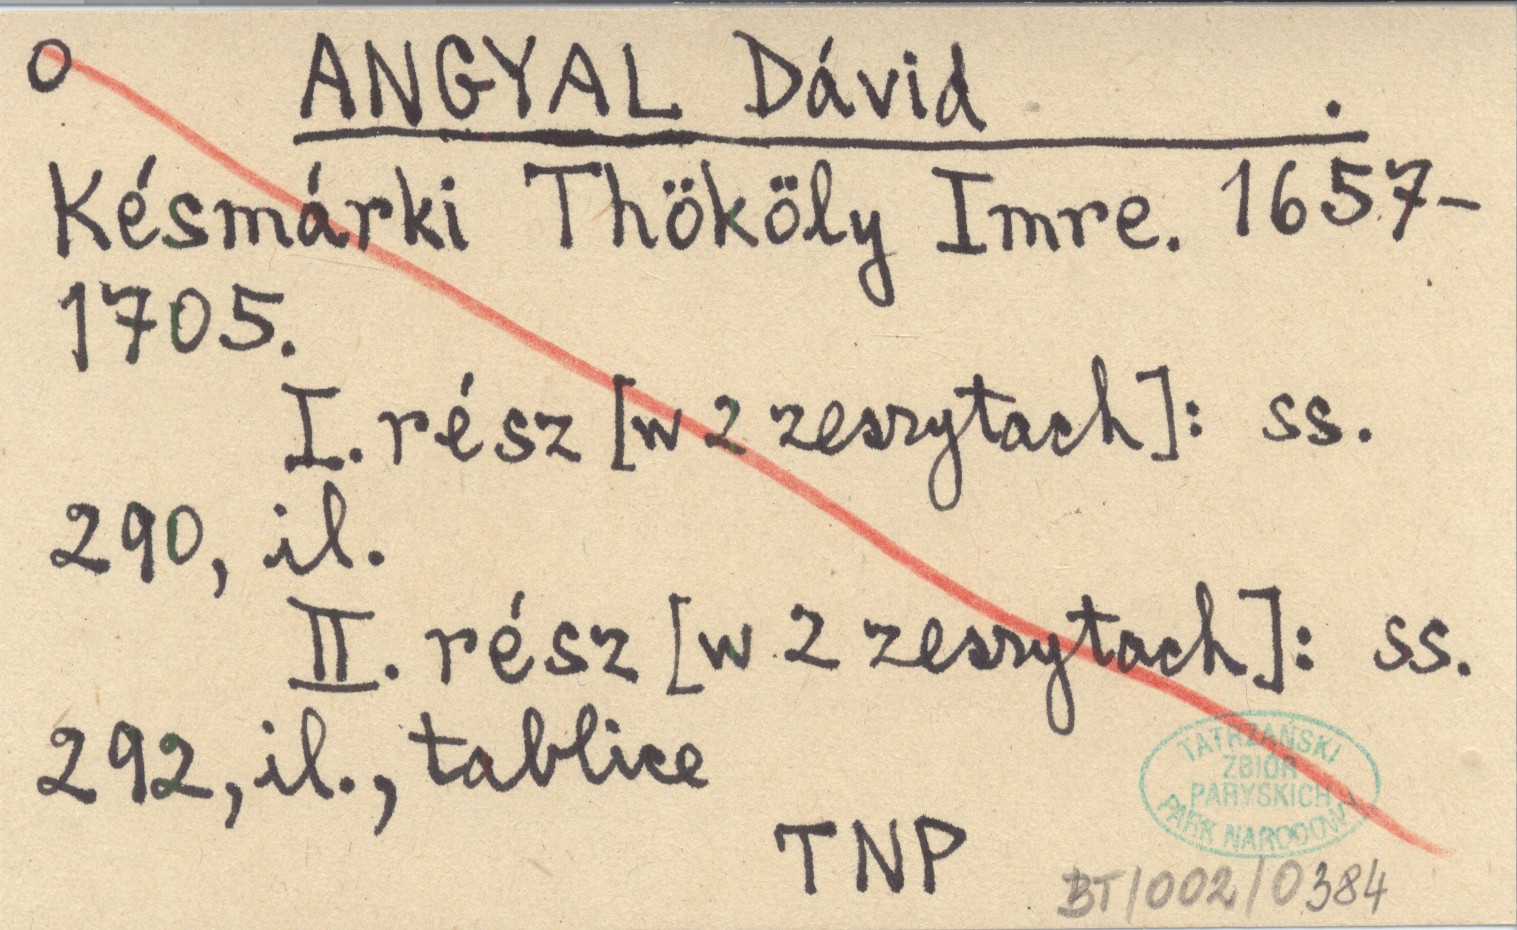 O ANGYAL Dávid .
Késmárki Thököly Imre. 1657-
1705.
I. rész [w 2 zeszytach]: ss.
290, il.
II. rész [w 2 zeszytach]: ss.
292, il., tablice
TATRZAŃSKI
ZBIÓR
PARYSKICH
PARK NARODOWY
TNP
BT/002/0384